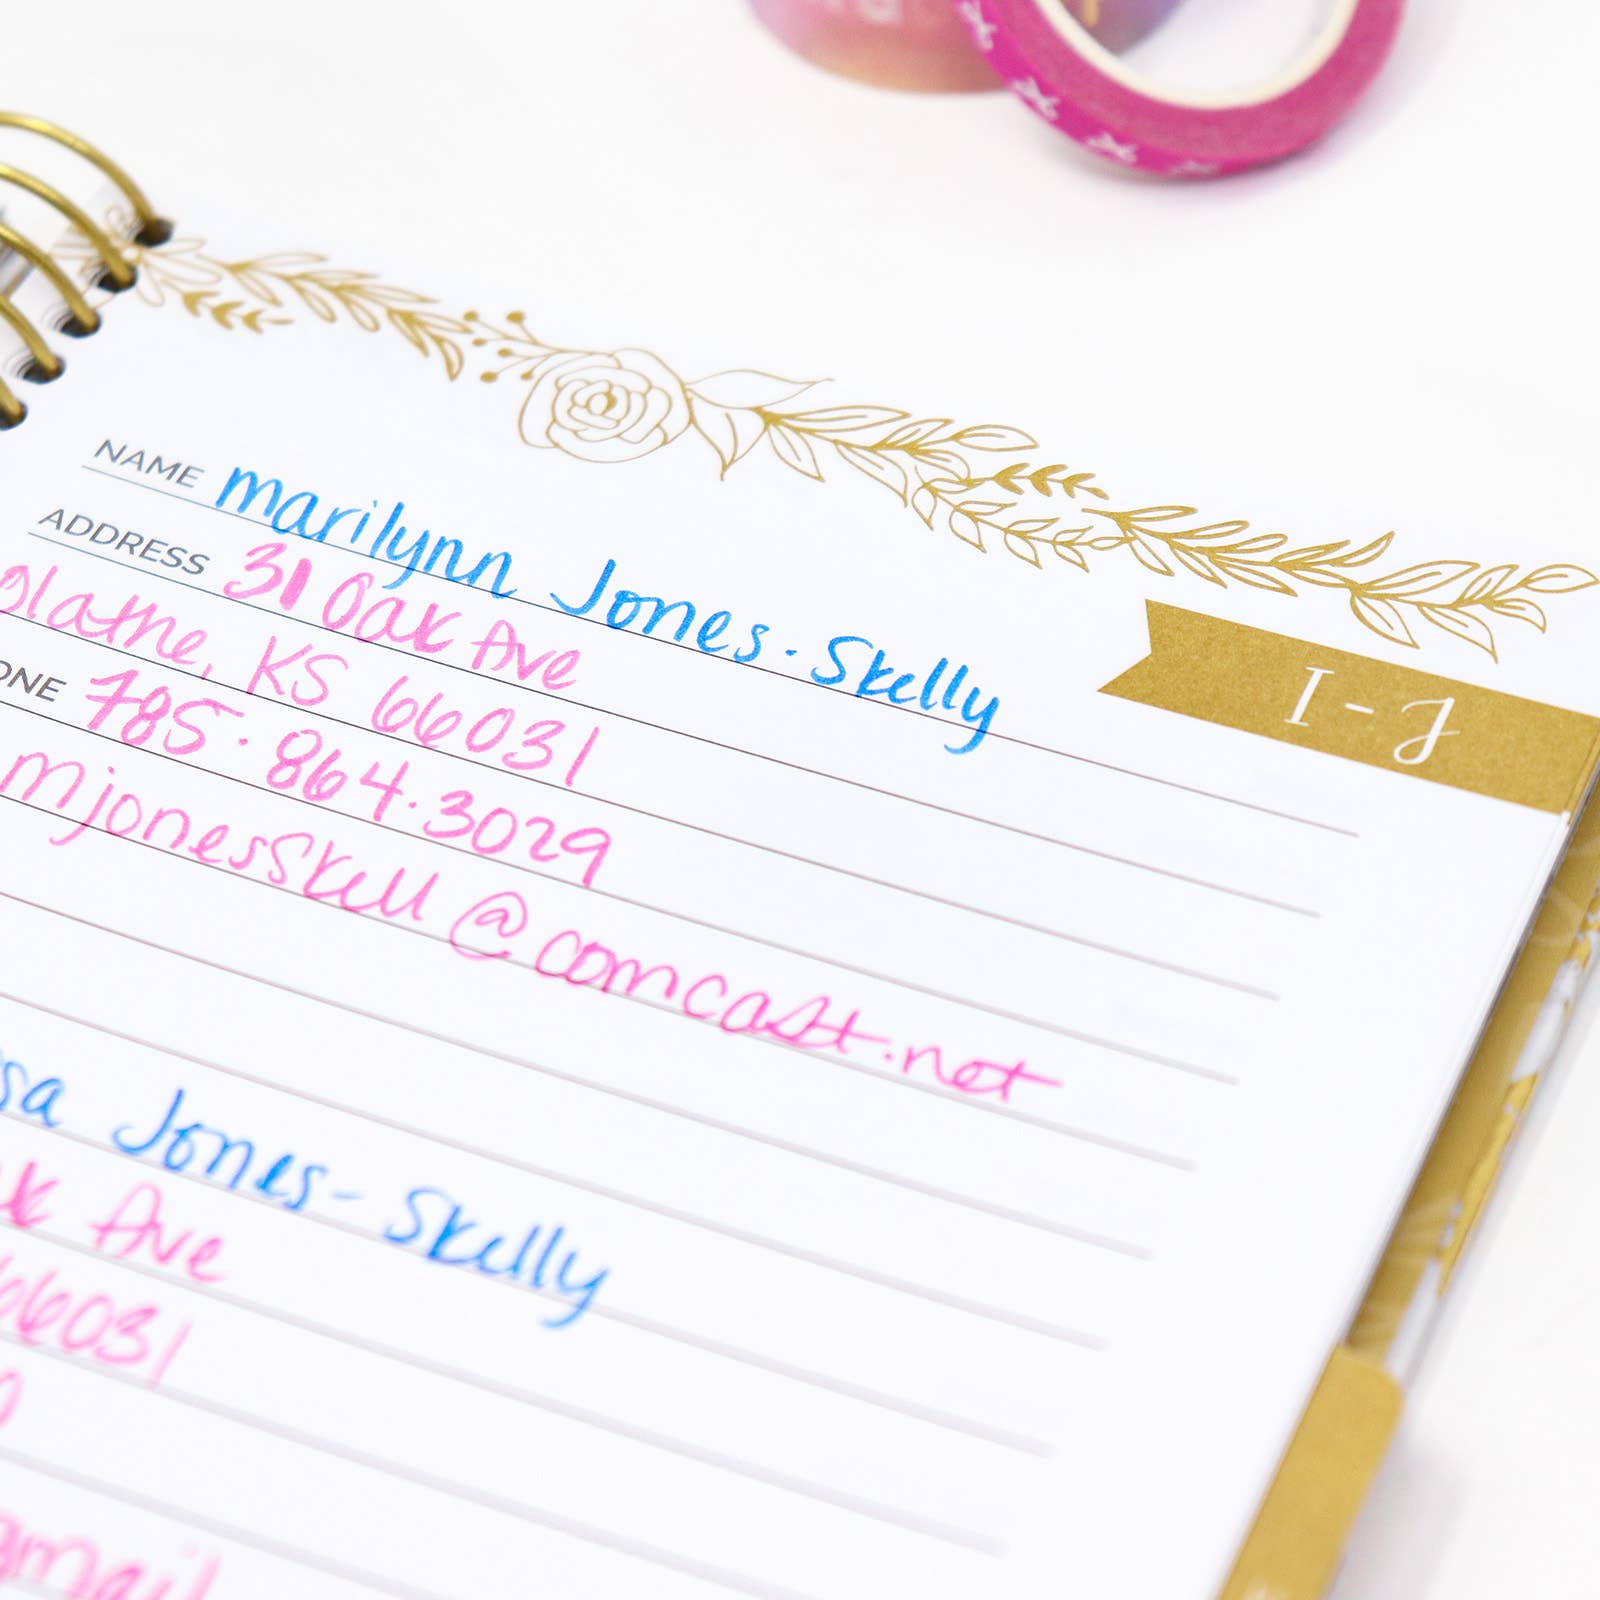 NAME marilynn Jones-Skelly
ADDRESS 31 Oak Ave
Olathe, KS 66031
ONE 785.864.3029
mjonesskell@comcast.net
I-J
sa Jones-Skelly
Ave
66031
gmail